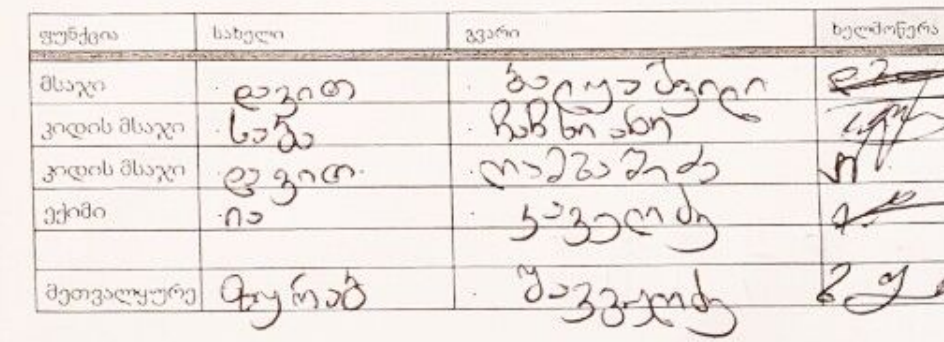 ფუნქცია სახელი გვარი ხელმოწერა
მსაჯი დავით ბალიაშვილი
კიდის მსაჯი საბა ჩახჩხიანი
კიდის მსაჯი დავით ლამპაშიძე
ექიმი ია კაველიძე
მეთვალყურე ზურაბ შავგულიძე